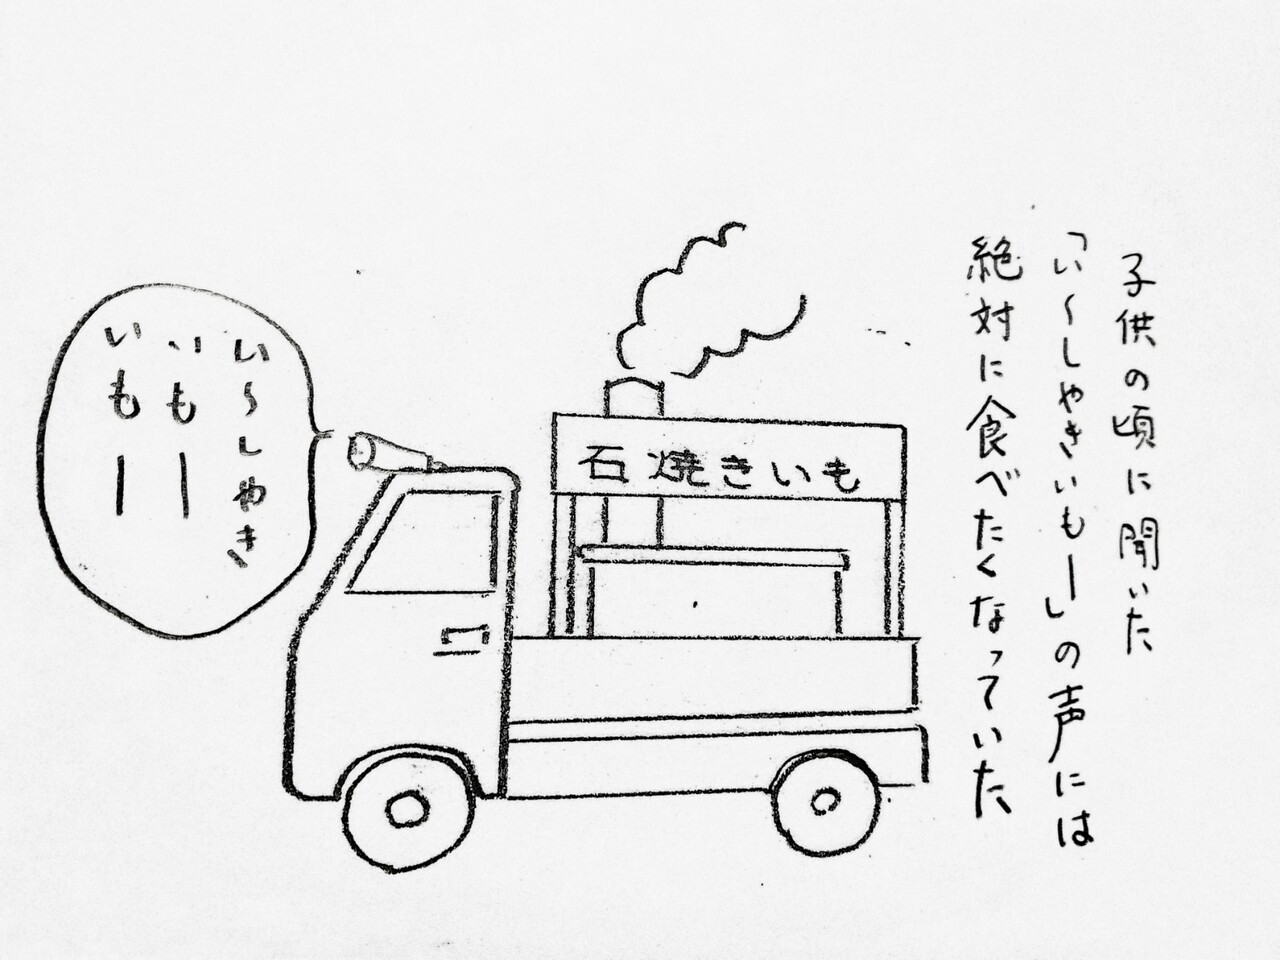 子供の頃に聞いた
「い〜しやきいもー」の声には
絶対に食べたくなっていた
石焼きいも
い〜しやき
いもー
いもー